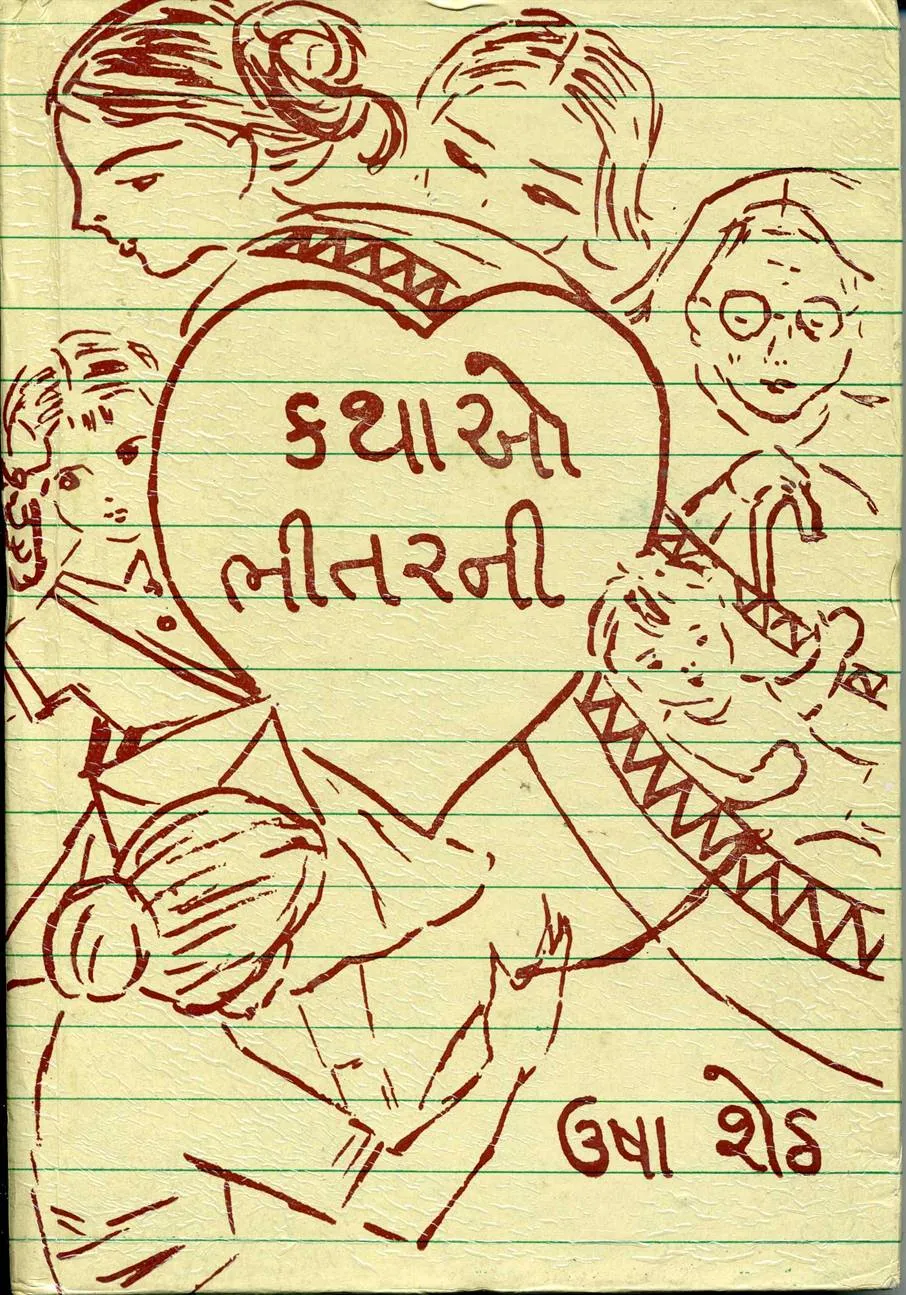 કથાઓ
ભીતરની
ઉષા શેઠ